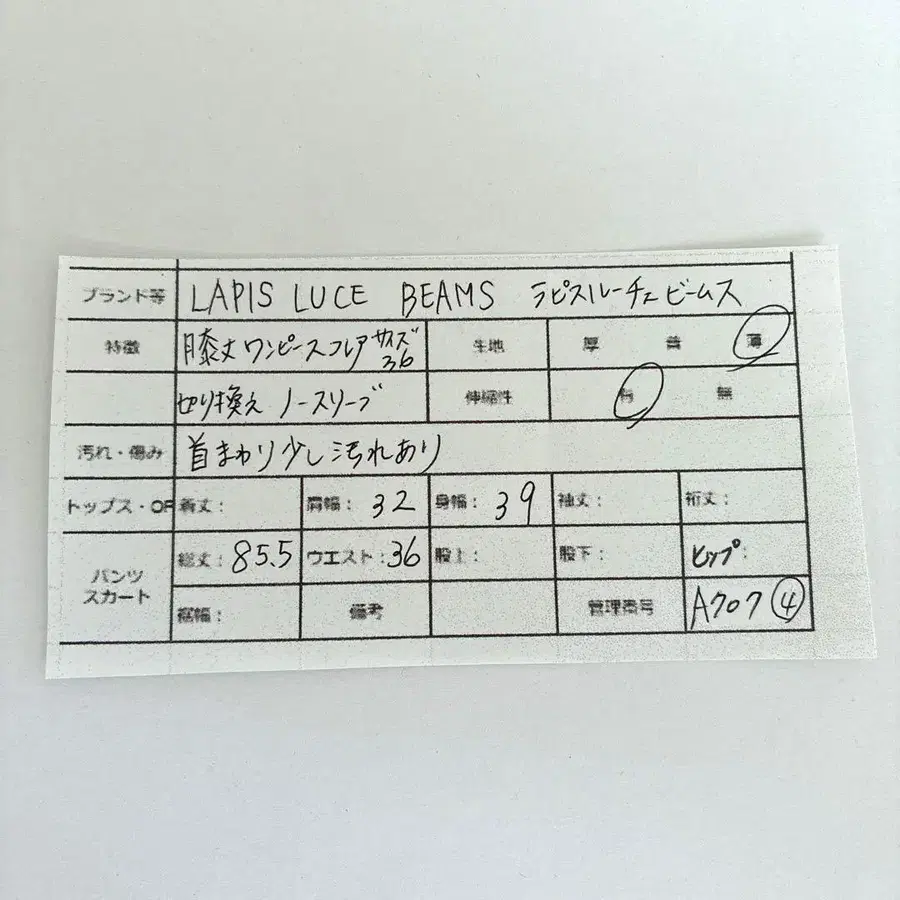 ブランド等 LAPIS LUCE BEAMS ラピスルーチェビームス
特徴 膝丈ワンピースフレア サイズ36 生地 厚 普 薄
切り換え ノースリーブ 伸縮性 有 無
汚れ・傷み 首まわり少し汚れあり
トップス・OP 着丈: 肩幅: 32 身幅: 39 袖丈: 裄丈:
パンツ スカート 総丈: 85.5 ウエスト: 36 股上: 股下: ヒップ:
裾幅: 備考 管理番号 A707 ④